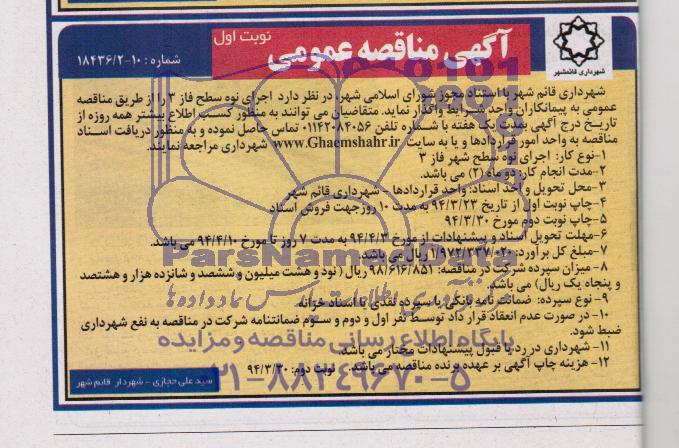 آگهی مناقصه عمومی
نوبت اول
شماره: ۱۰-۱۸۴۳۶/۲
شهرداری قائمشهر
شهرداری قائم شهر با استناد مجوز شورای اسلامی شهر، در نظر دارد اجرای نوه سطح فاز ۳ را از طریق مناقصه
عمومی به پیمانکاران واجد شرایط واگذار نماید. متقاضیان می توانند به منظور کسب اطلاع بیشتر همه روزه از
تاریخ درج آگهی بمدت یک هفته با شماره تلفن ۰۱۱۴۲۰۸۴۰۵۶ تماس حاصل نموده و به منظور دریافت اسناد
مناقصه به واحد امور قراردادها و یا به سایت www.Ghaemshahr.ir شهرداری مراجعه نمایند.
۱-نوع کار: اجرای نوه سطح شهر فاز ۳
۲-مدت انجام کار: دو ماه (۲) می باشد.
۳-محل تحویل و اخذ اسناد: واحد قراردادها - شهرداری قائم شهر
۴-چاپ نوبت اول از تاریخ ۹۴/۳/۲۳ به مدت ۱۰ روز جهت فروش اسناد
۵-چاپ نوبت دوم مورخ ۹۴/۳/۳۰
۶-مهلت تحویل اسناد و پیشنهادات از مورخ ۹۴/۴/۳ به مدت ۷ روز تا مورخ ۹۴/۴/۱۰ می باشد.
۷-مبلغ کل برآورد: ۱/۹۷۲/۳۳۷/۰۲۰ ریال می باشد.
۸- میزان سپرده شرکت در مناقصه: ۹۸/۶۱۶/۸۵۱ ریال ( نود و هشت میلیون و ششصد و شانزده هزار و هشتصد
و پنجاه یک ریال) می باشد.
۹- نوع سپرده: ضمانت نامه بانکی یا سپرده نقدی یا اسناد خزانه
۱۰- در صورت عدم انعقاد قرار داد توسط نفر اول و دوم و سوم ضمانتنامه شرکت در مناقصه به نفع شهرداری
ضبط شود.
۱۱- شهرداری در رد یا قبول پیشنهادات مختار می باشد.
۱۲- هزینه چاپ آگهی بر عهده برنده مناقصه می باشد. نوبت دوم: ۹۴/۳/۳۰
سید علی حجازی - شهردار قائم شهر
ParsNamadData
پایگاه اطلاع رسانی مناقصه و مزایده
۰۲۱-۸۸۳۴۹۶۷۰-۵